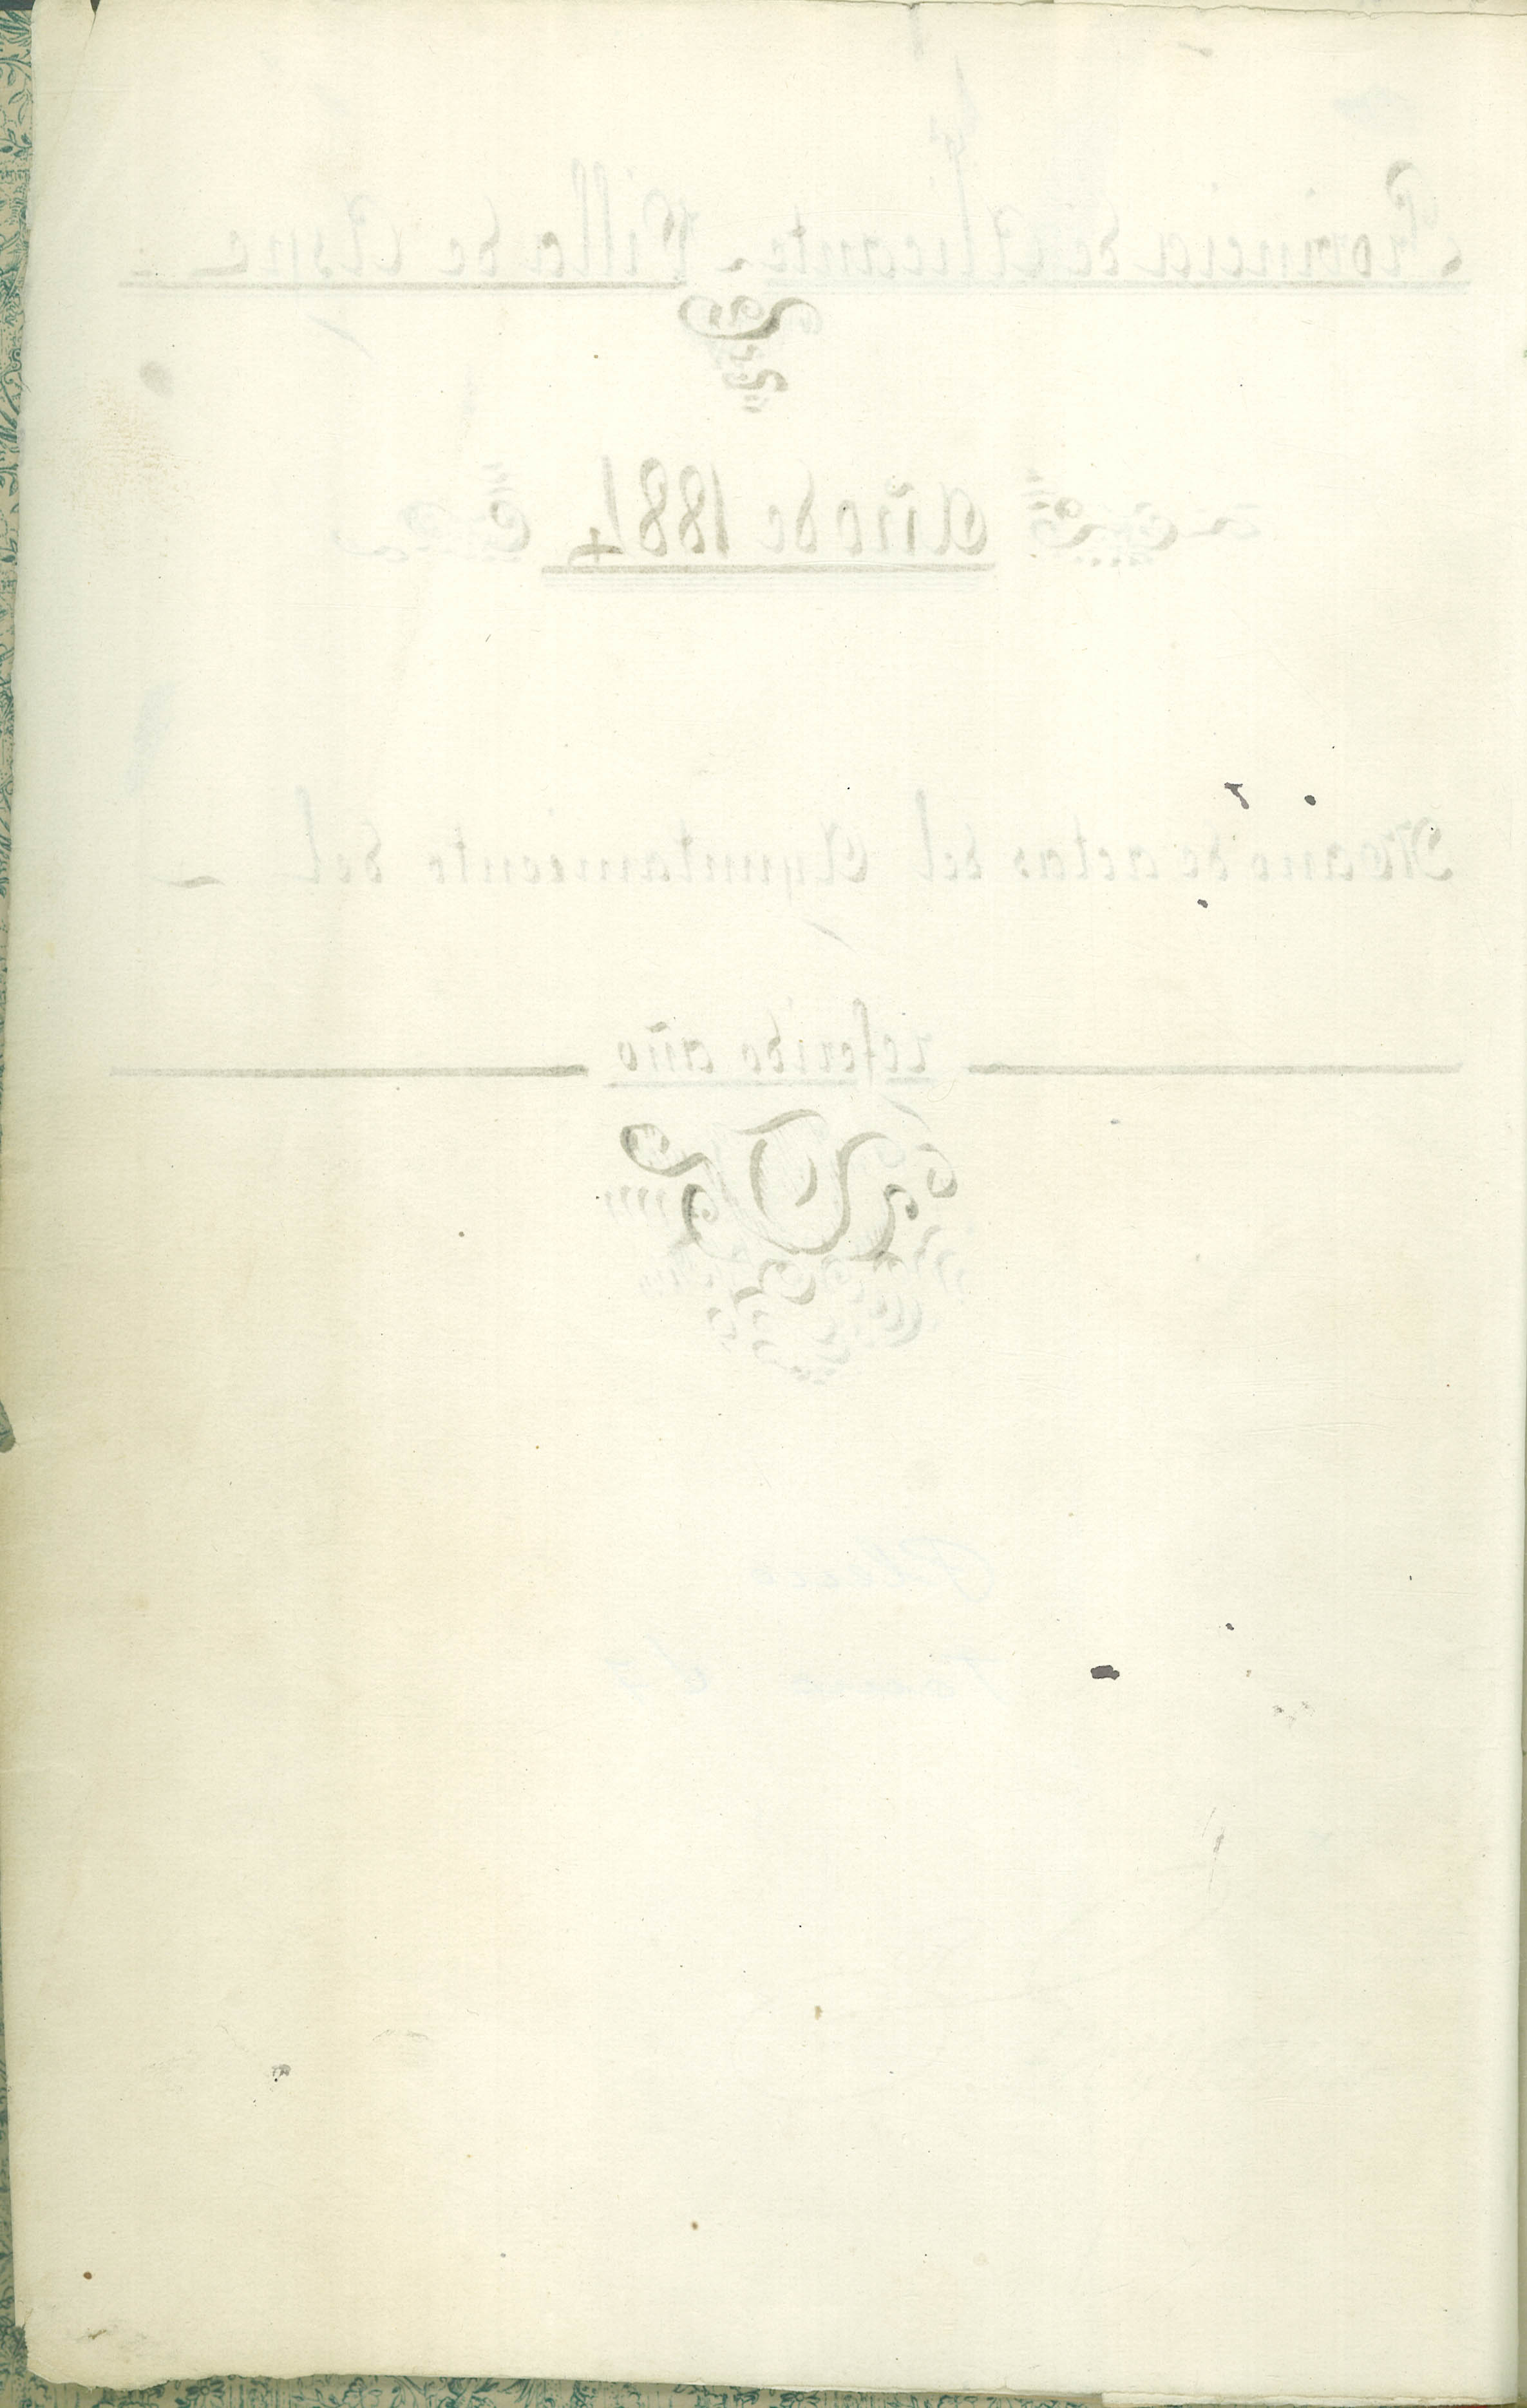 Provincia de Alicante - Villa de Aspe
Año de 1884
Mano de actas del Ayuntamiento del
referido año